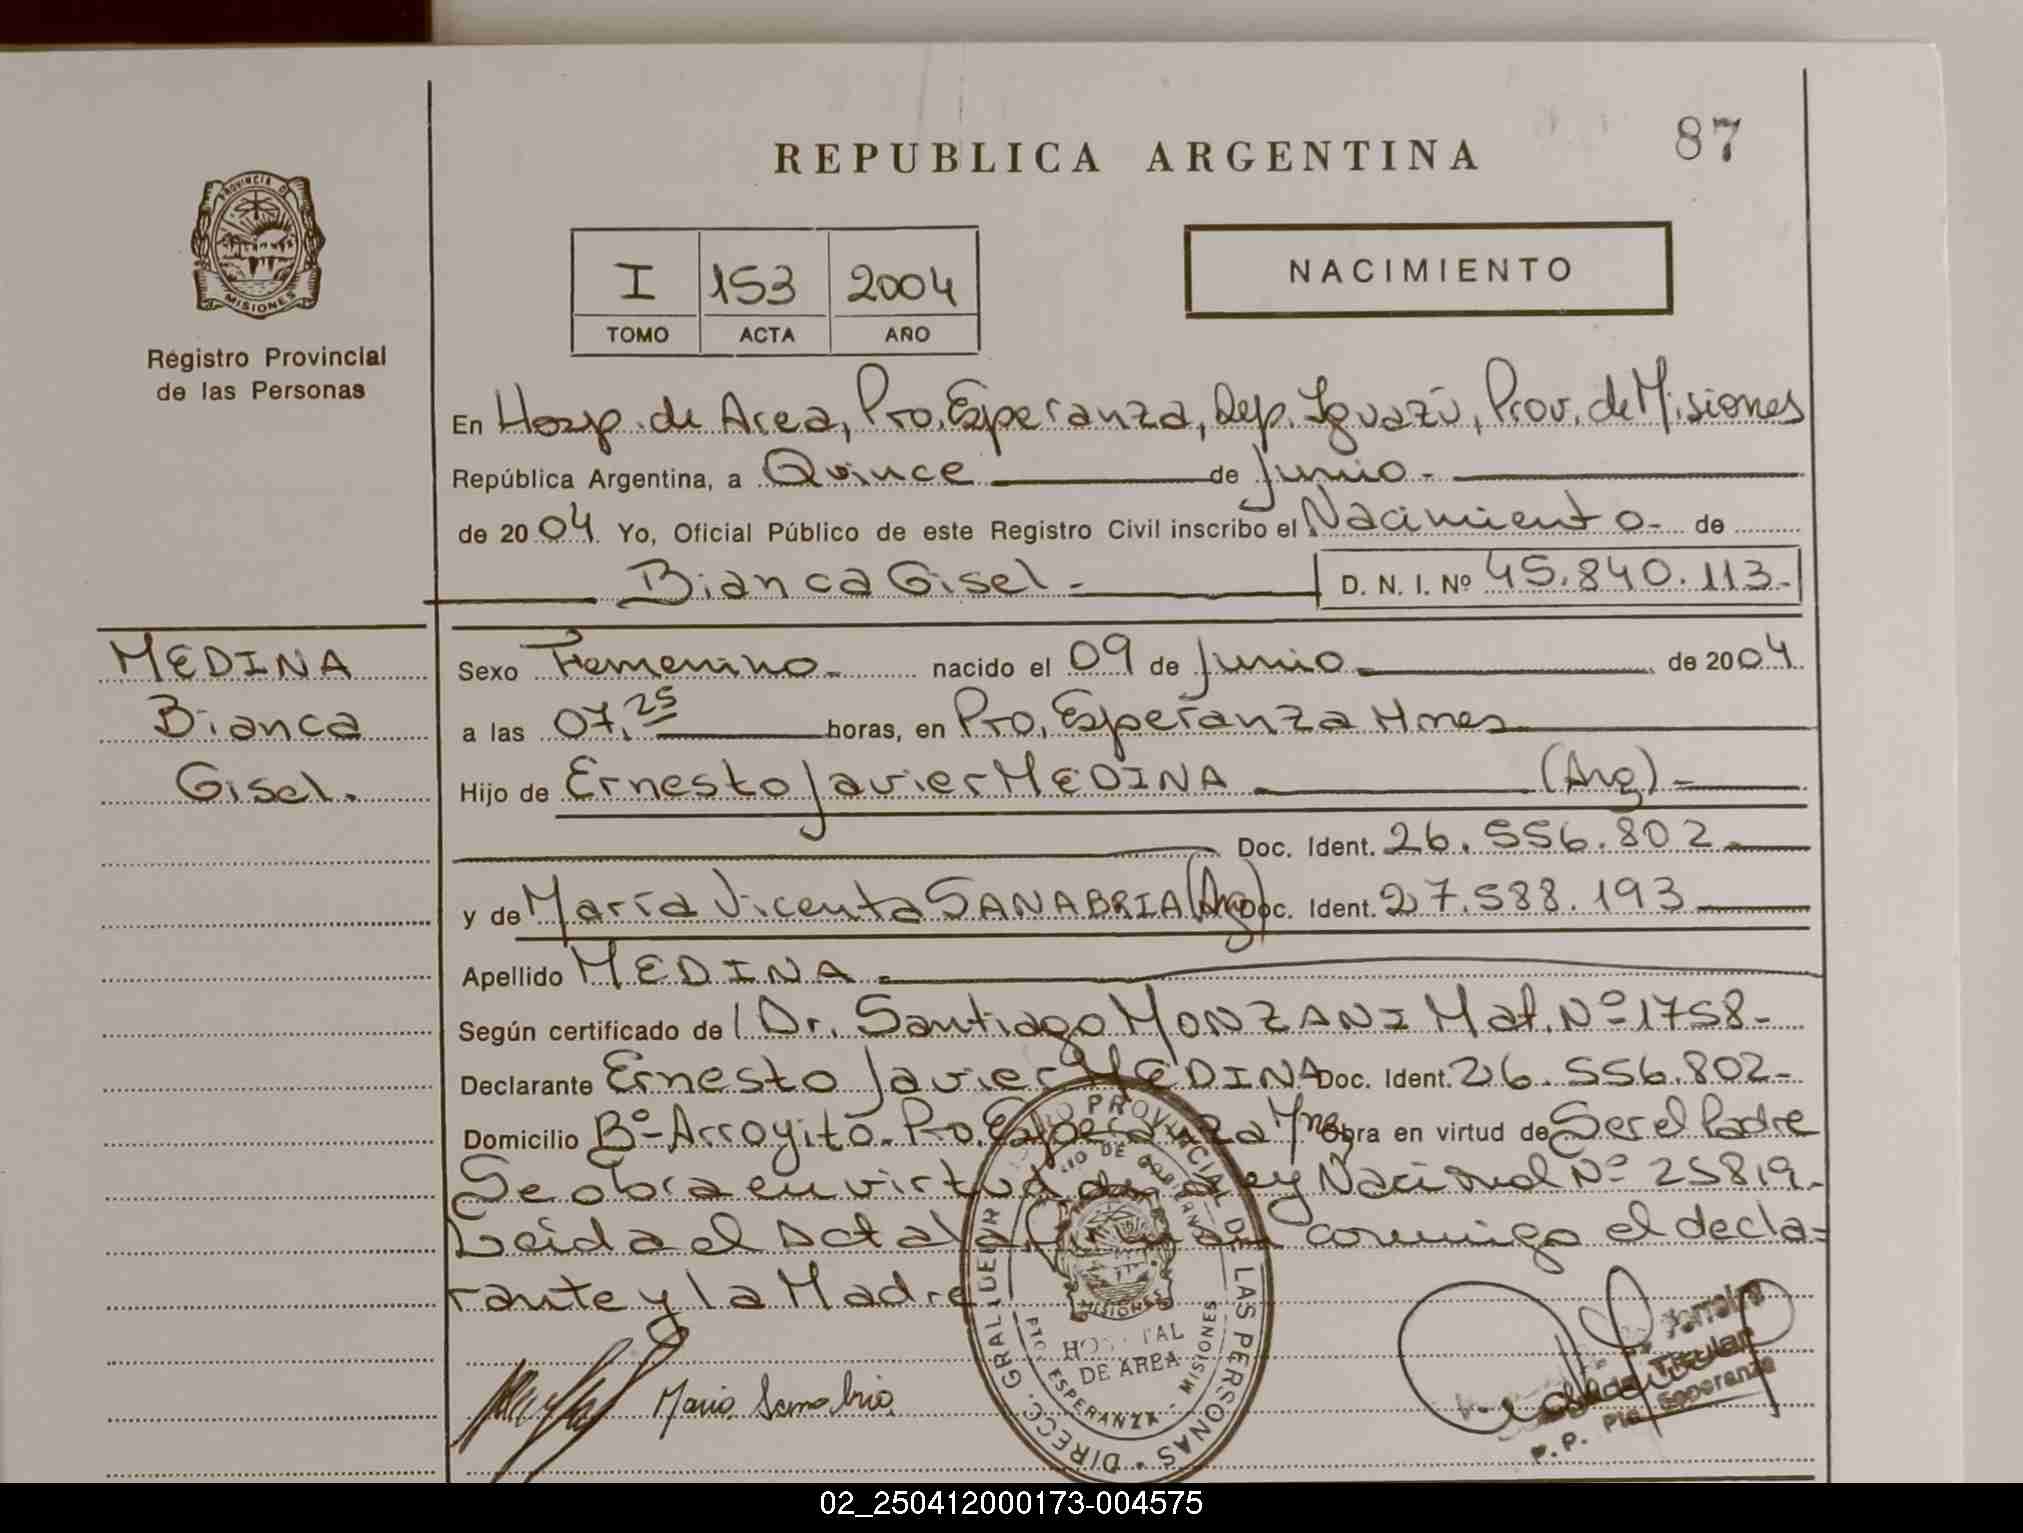 REPUBLICA ARGENTINA
87
PROVINCIA D
MISIONES
Registro Provincial
de las Personas
I 153 2004
TOMO ACTA AÑO
NACIMIENTO
En Hosp. de Area, Pto. Esperanza, Dep. Iguazú, Prov. de Misiones
República Argentina, a Quince de Junio.-
de 2004 Yo, Oficial Público de este Registro Civil inscribo el Nacimiento.- de
Bianca Gisel.- D. N. I. Nº 45.840.113.-
MEDINA
Bianca
Gisel.
Sexo Femenino.- nacido el 09 de Junio.- de 2004.
a las 07.25 horas, en Pto. Esperanza Mnes
Hijo de Ernesto Javier MEDINA (Arg).-
Doc. Ident. 26.556.802.-
y de María Vicenta SANABRIA (Arg) Doc. Ident. 27.588.193
Apellido MEDINA.-
Según certificado de Dr. Santiago MONZANI Mat. Nº 1758.-
Declarante Ernesto Javier MEDINA Doc. Ident. 26.556.802.-
Domicilio Bº Arroyito. Pto. Esperanza Mnes Obra en virtud de Ser el Padre
Se obra en virtud de Ley Nacional Nº 25819.-
Leida el Acta la firman conmigo el decla-
rante y la Madre
Maria Sanabria
DIRECC. GRAL DEL PROVINCIAL DE LAS PERSONAS
MISIONES
HOSPITAL
DE AREA
PTO. ESPERANZA - MISIONES
Titular
Pto Esperanza
02_250412000173-004575